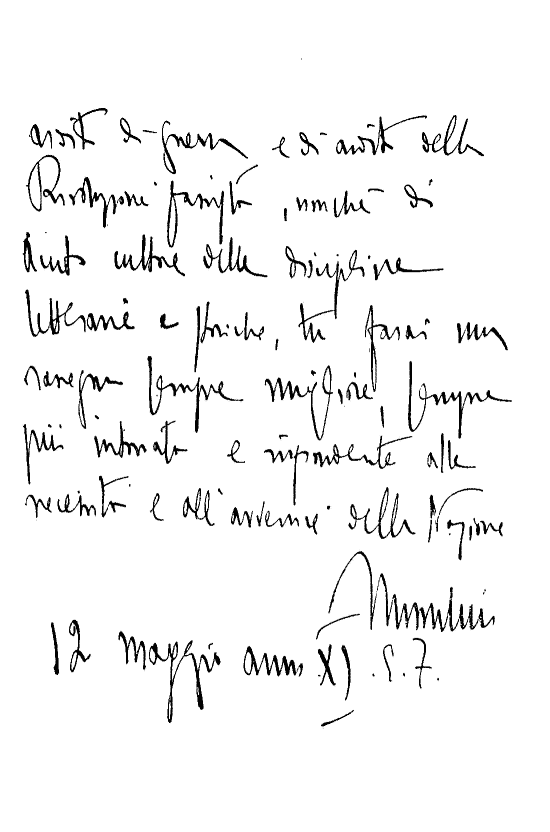 ardito di guerra e di ardito della
Rivoluzione fascista, nonché di
cultore delle discipline
letterarie e storiche, tu farai una
rassegna sempre migliore, sempre
più intonata e rispondente alle
necessità e all'avvenire della Nazione
Mussolini
12 maggio anno XI E.F.